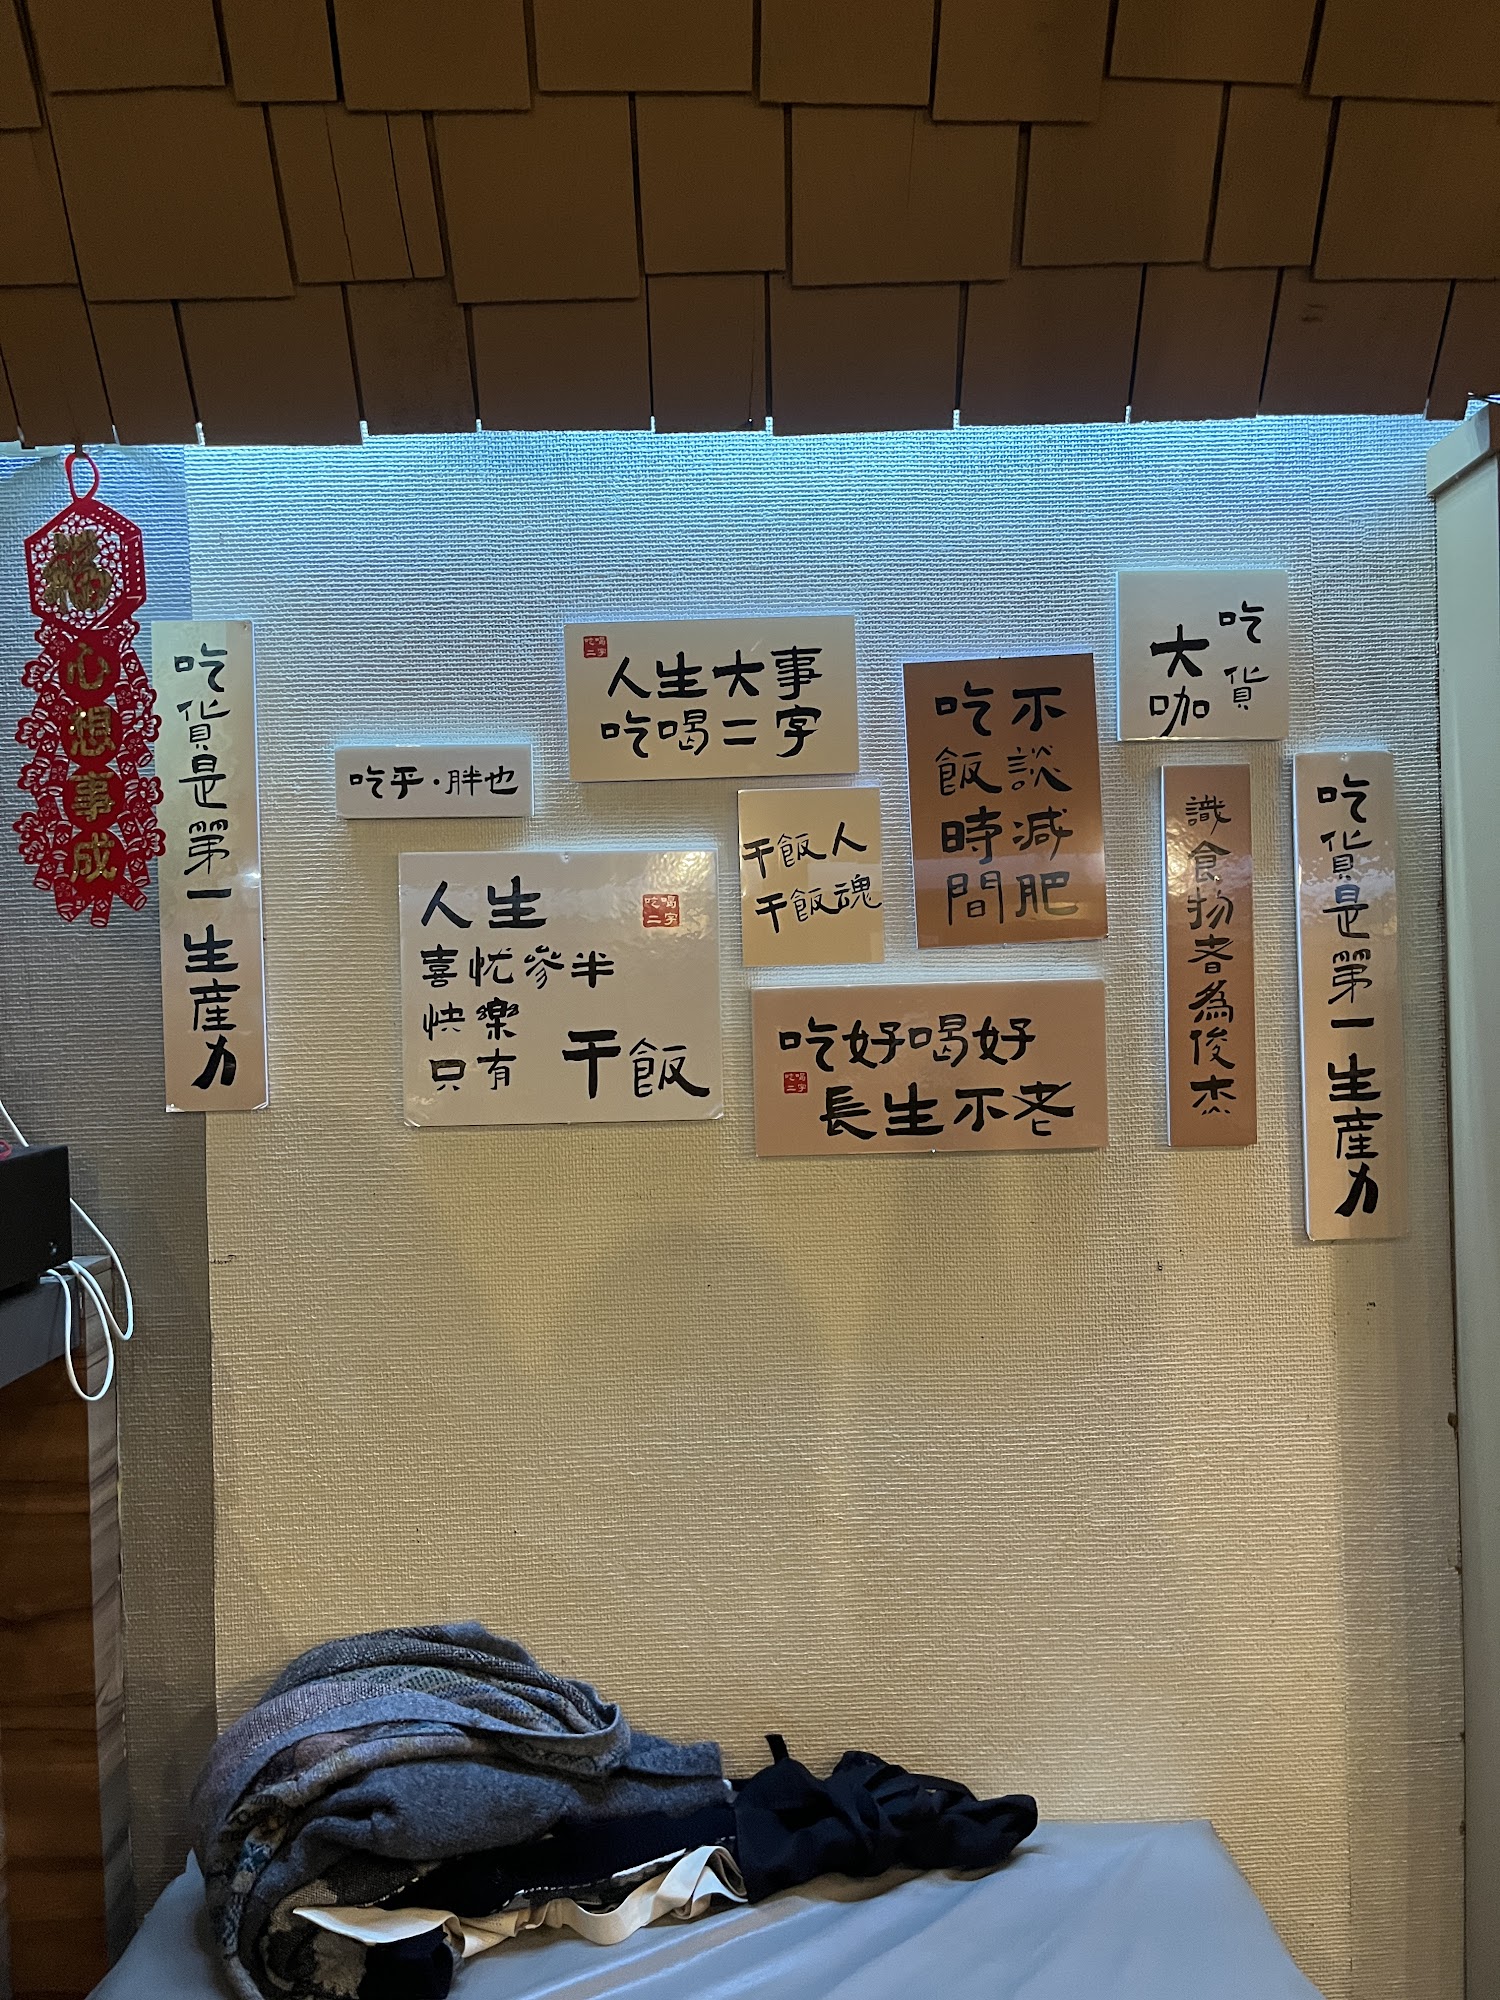 福
心想事成
吃貨是第一生産力
吃乎·胖也
吃喝二字
人生大事
吃喝二字
人生
吃喝二字
喜忧參半
快樂
只有
干飯
干飯人
干飯魂
不談減肥
吃飯時間
吃好喝好
吃喝二字
長生不老
吃貨
大咖
識食物者為俊杰
吃貨是第一生産力